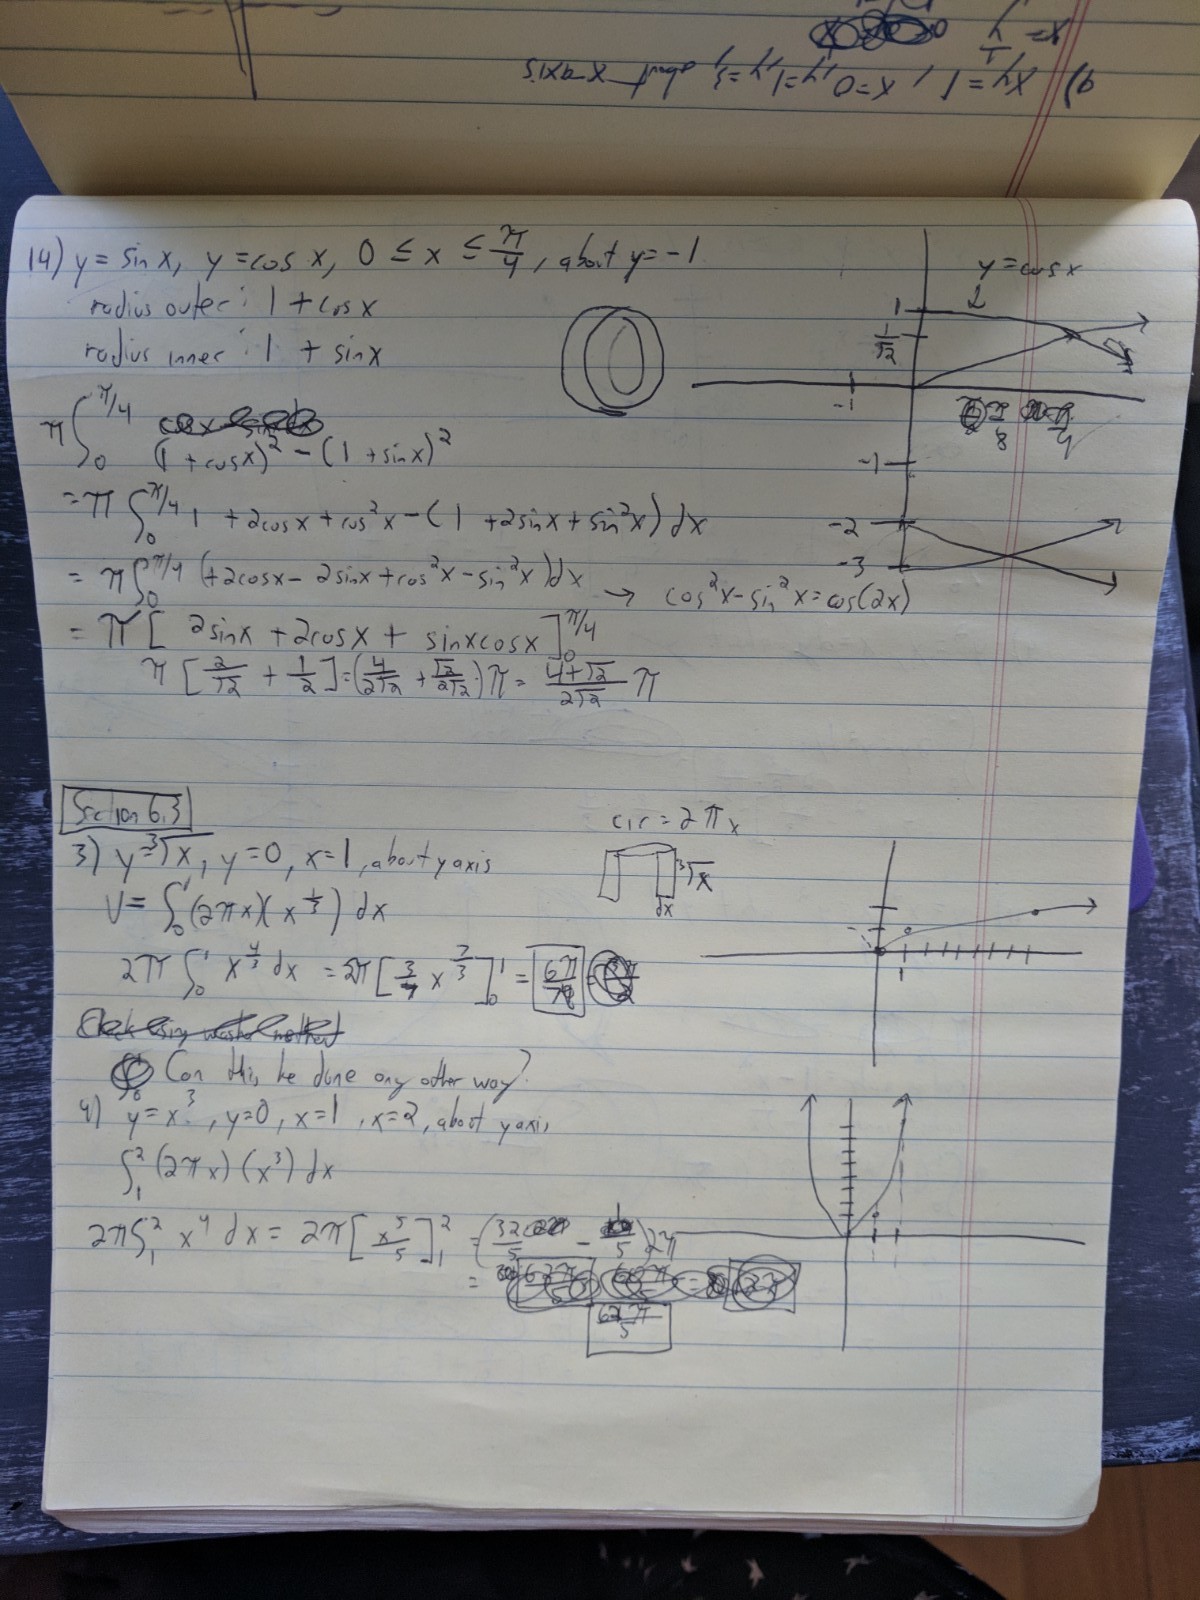 9) xy = 1, x=0, y=1, y=3, about x-axis
x = 1/y
14) y = sin x, y = cos x, 0 ≤ x ≤ π/4, about y = -1
radius outer: 1 + cos x
radius inner: 1 + sin x
π ∫₀^π/4 (1 + cos x)² - (1 + sin x)²
= π ∫₀^π/4 1 + 2cos x + cos² x - (1 + 2sin x + sin² x) dx
= π ∫₀^π/4 (+2cos x - 2sin x + cos² x - sin² x) dx → cos² x - sin² x = cos(2x)
= π [ 2sin x + 2cos x + sin x cos x ]₀^π/4
π [ 2/√2 + 1/2 ] = (4/2√2 + √2/2√2) π = (4+√2)/2√2 π
y = cos x
1
1/√2
-1
π/8 π/4
-1
-2
-3
Section 6.3
3) y = ³√x, y=0, x=1, about y axis
V = ∫₀¹ (2πx)(x^1/3) dx
2π ∫₀¹ x^4/3 dx = 2π [ 3/7 x^7/3 ]₀¹ = 6π/7
cir = 2πx
³√x
dx
1
Check using washer method
Can this be done any other way?
4) y = x³, y=0, x=1, x=2, about y axis
∫₁² (2πx)(x³) dx
2π ∫₁² x⁴ dx = 2π [ x⁵/5 ]₁² = (32/5 - 1/5) 2π
=
62π/5